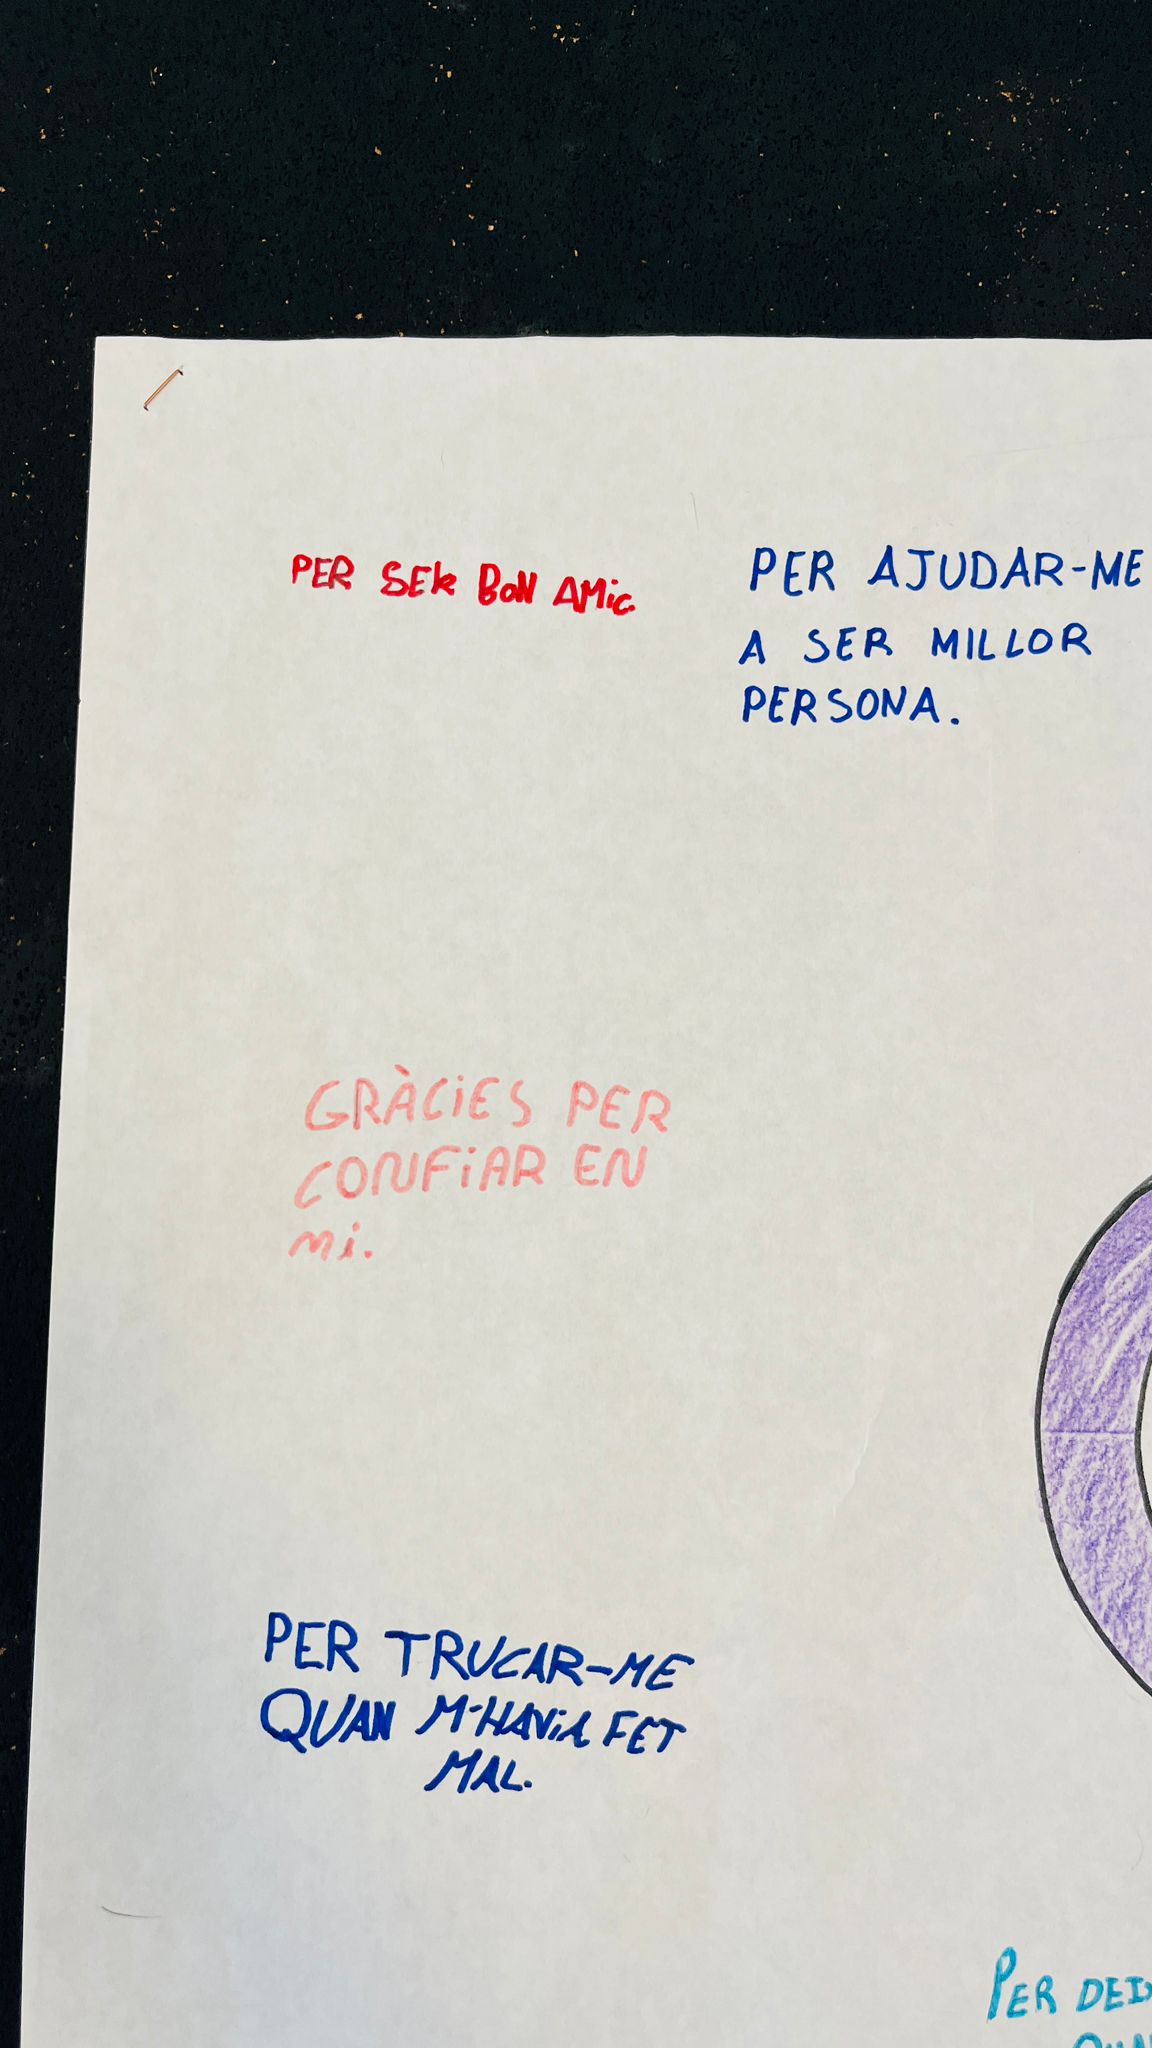 PER SER BON AMIC
PER AJUDAR-ME
A SER MILLOR
PERSONA.
GRÀCiES PER
CONFiAR EN
Mi.
PER TRUCAR-ME
QUAN M'HAViA FET
MAL.
PER